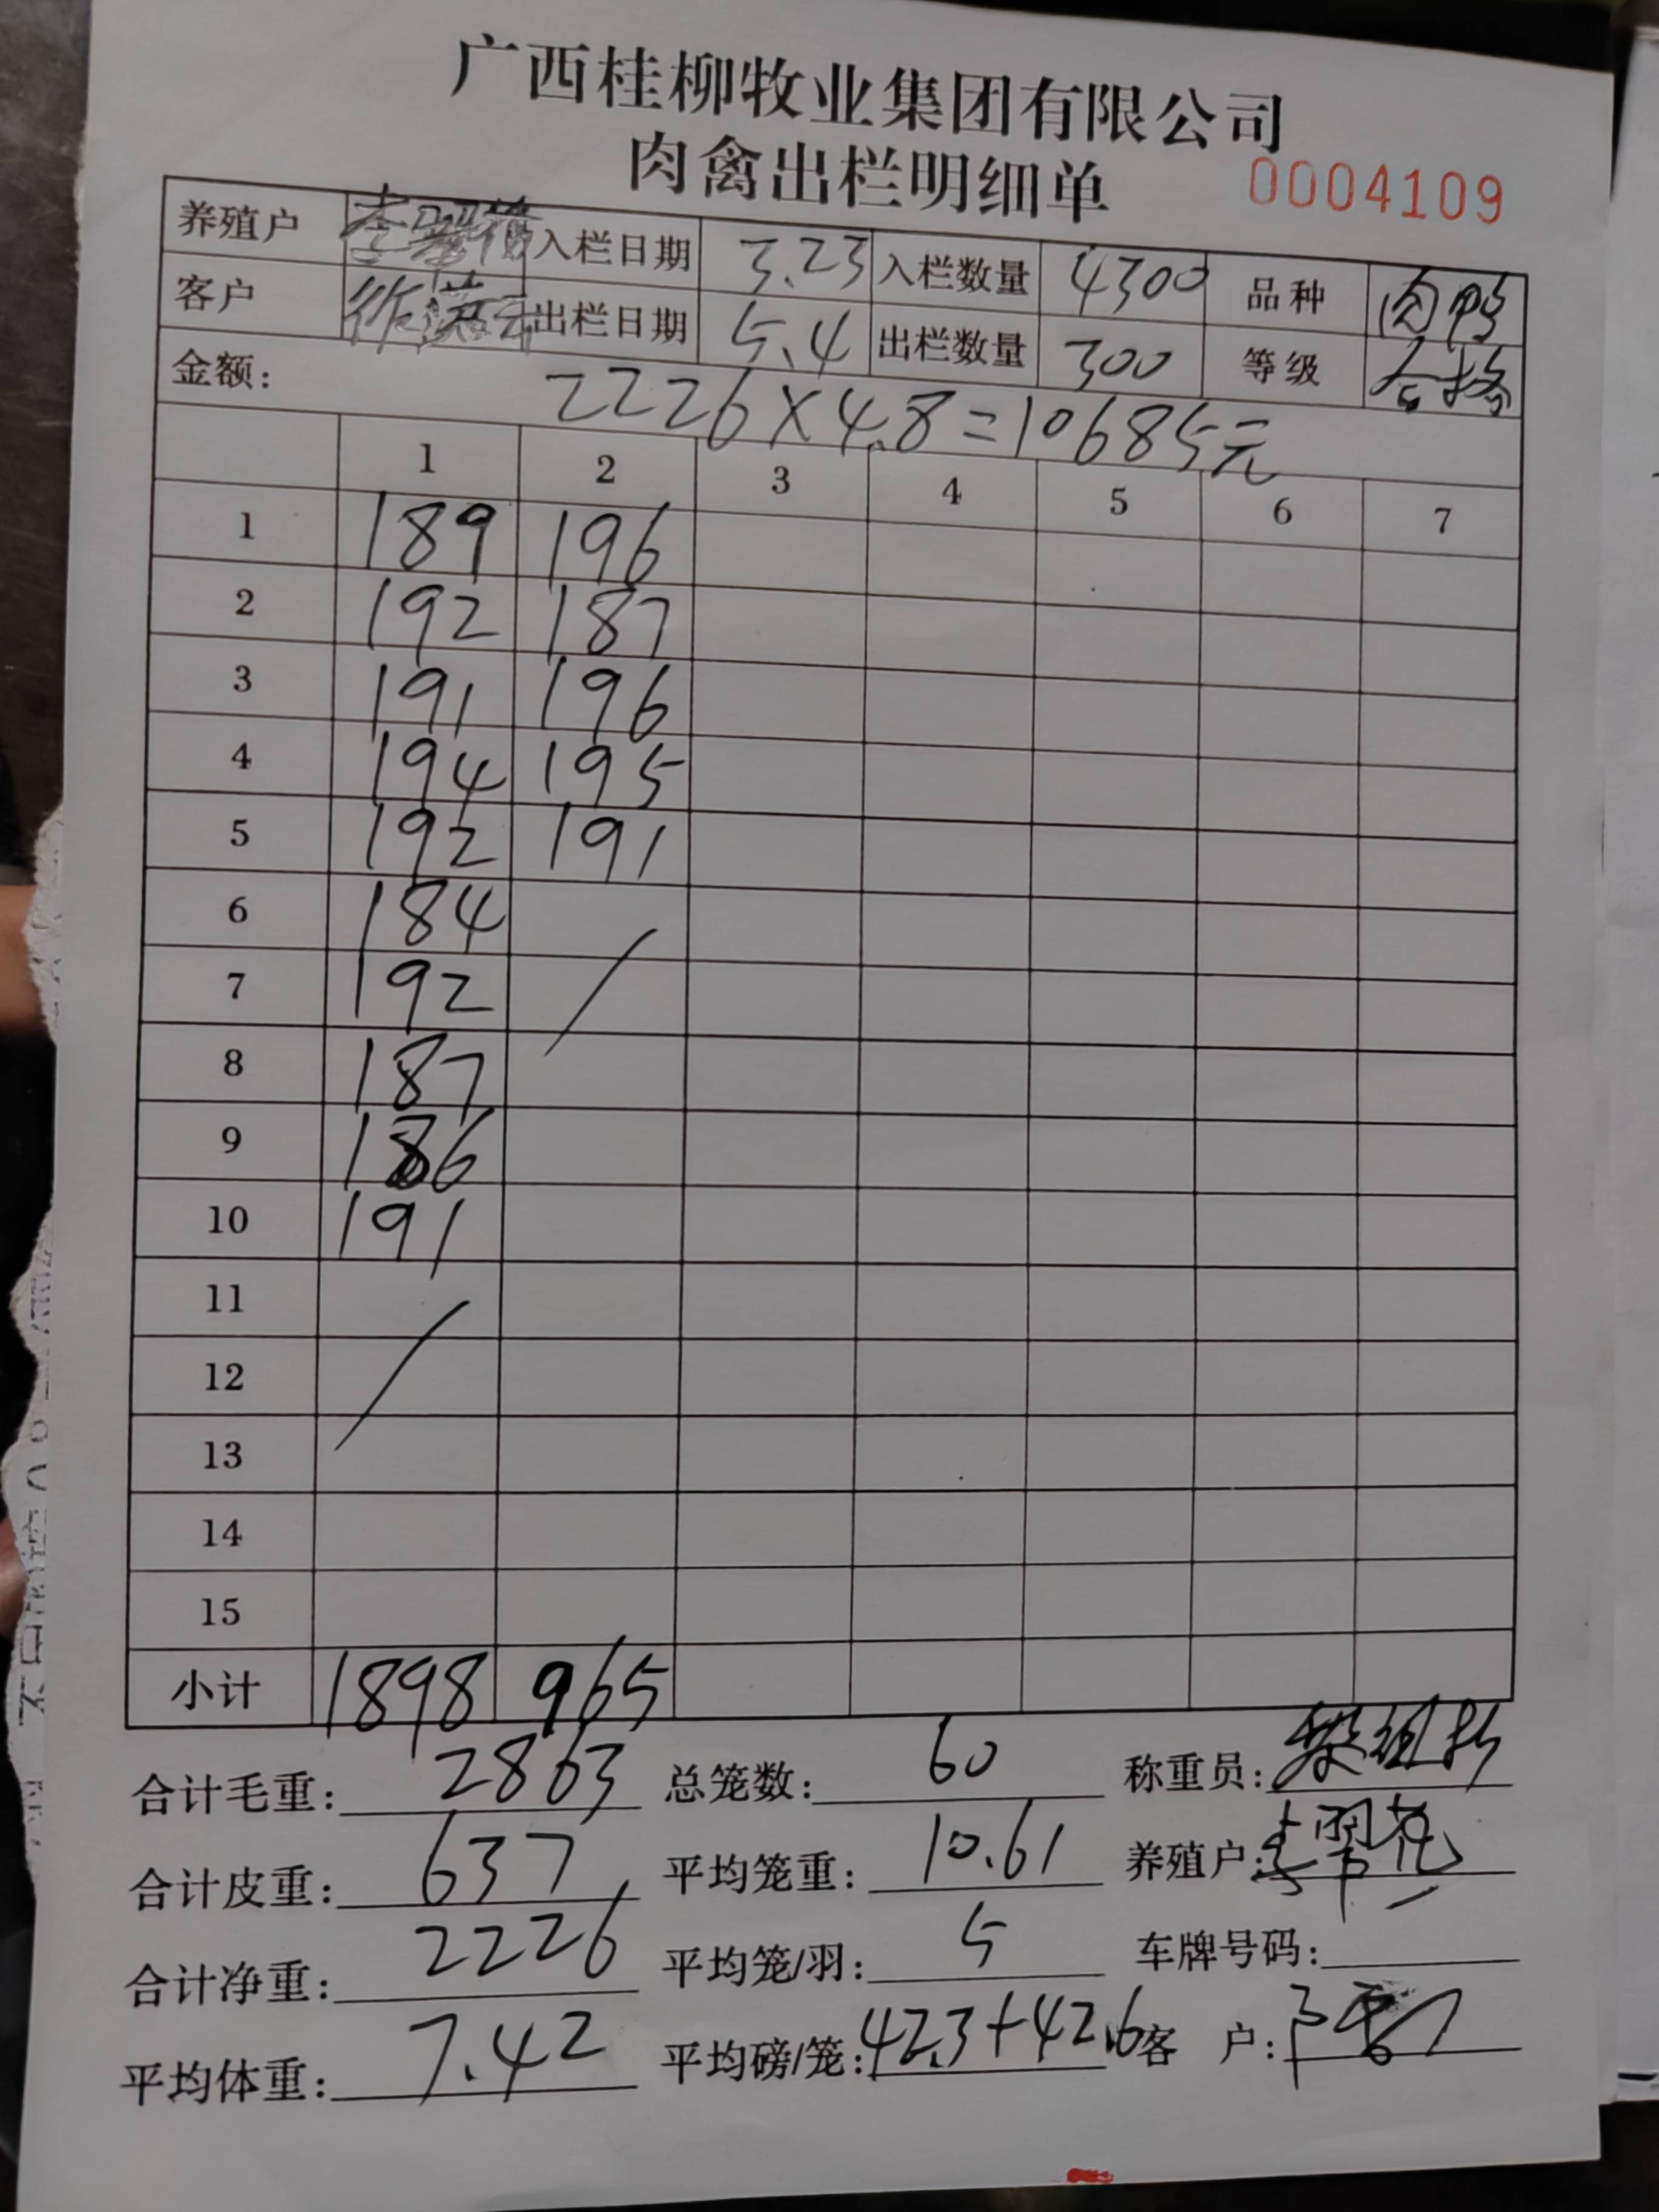 广西桂柳牧业集团有限公司
肉禽出栏明细单 0004109
养殖户 入栏日期 3.23 入栏数量 4300 品种 肉鸭
客户 出栏日期 5.4 出栏数量 300 等级 合格
金额: 2226×4.8=10685元
1 2 3 4 5 6 7
1 189 196
2 192 187
3 191 196
4 194 195
5 192 191
6 184
7 192
8 187
9 186
10 191
11
12
13
14
15
小计 1898 965
合计毛重: 2863 总笼数: 60 称重员:
合计皮重: 637 平均笼重: 10.61 养殖户: 李翠花
合计净重: 2226 平均笼/羽: 5 车牌号码:
平均体重: 7.42 平均磅/笼: 42.3+42.6 客户: